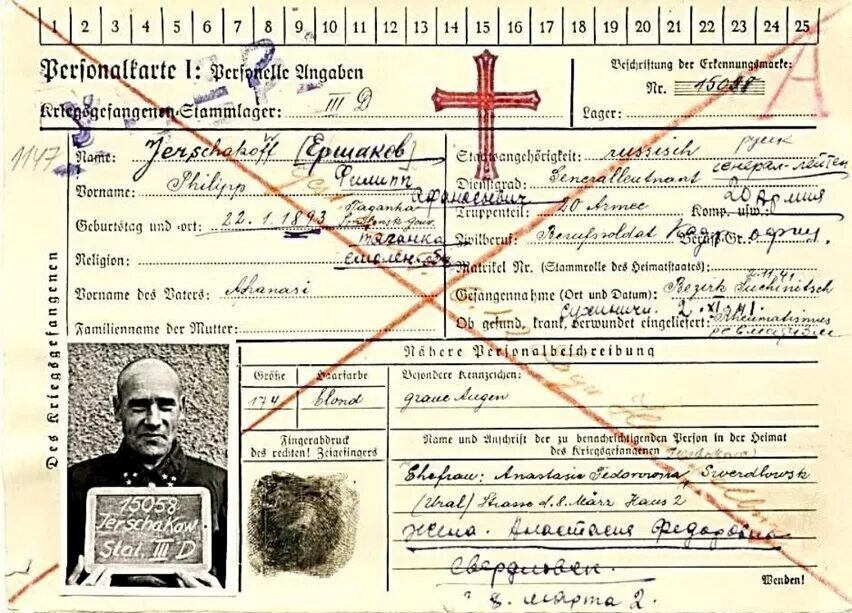 1 2 3 4 5 6 7 8 9 10 11 12 13 14 15 16 17 18 19 20 21 22 23 24 25
Personalkarte I: Personelle Angaben
Kriegsgefangenen-Stammlager: III D
Beschriftung der Erkennungsmarke:
Nr. 15058
Lager:
A
1147
Des Kriegsgefangenen
Name: Jerschakoff (Ершаков)
Vorname: Philipp Филипп
Афанасьевич
Geburtstag und -ort: 22. 1. 1893 Taganka
Smolensk-Gouv.
Таганка
Religion:
Vorname des Vaters: Afanasi
Familienname der Mutter:
Staatsangehörigkeit: russisch руск
Dienstgrad: Generalleutnant генерал-лейтен
Truppenteil: 20 Armee Komp. usw.: 20 Армия
Zivilberuf: Berufssoldat Berufs-Gr.: Кадр. офиц.
Matrikel Nr. (Stammrolle des Heimatstaates):
Gefangennahme (Ort und Datum): 2.11.41 Bezirk Suchinitsch
Сухиничи 2. XI 41.
Ob gesund, krank, verwundet eingeliefert: Rheumatismus
ревматизм
Nähere Personalbeschreibung
Größe Haarfarbe Besondere Kennzeichen:
174 blond graue Augen
Fingerabdruck
des rechten! Zeigefingers
Name und Anschrift der zu benachrichtigenden Person in der Heimat
des Kriegsgefangenen
Ehefrau: Anastasie Fedorowna, Swerdlowsk
(Ural) Strasse d. 8. März Haus 2
жена. Анастасия Федоровна
Свердловск.
8. марта 2.
Wenden!
15058
Jerschakow
Stal. III D